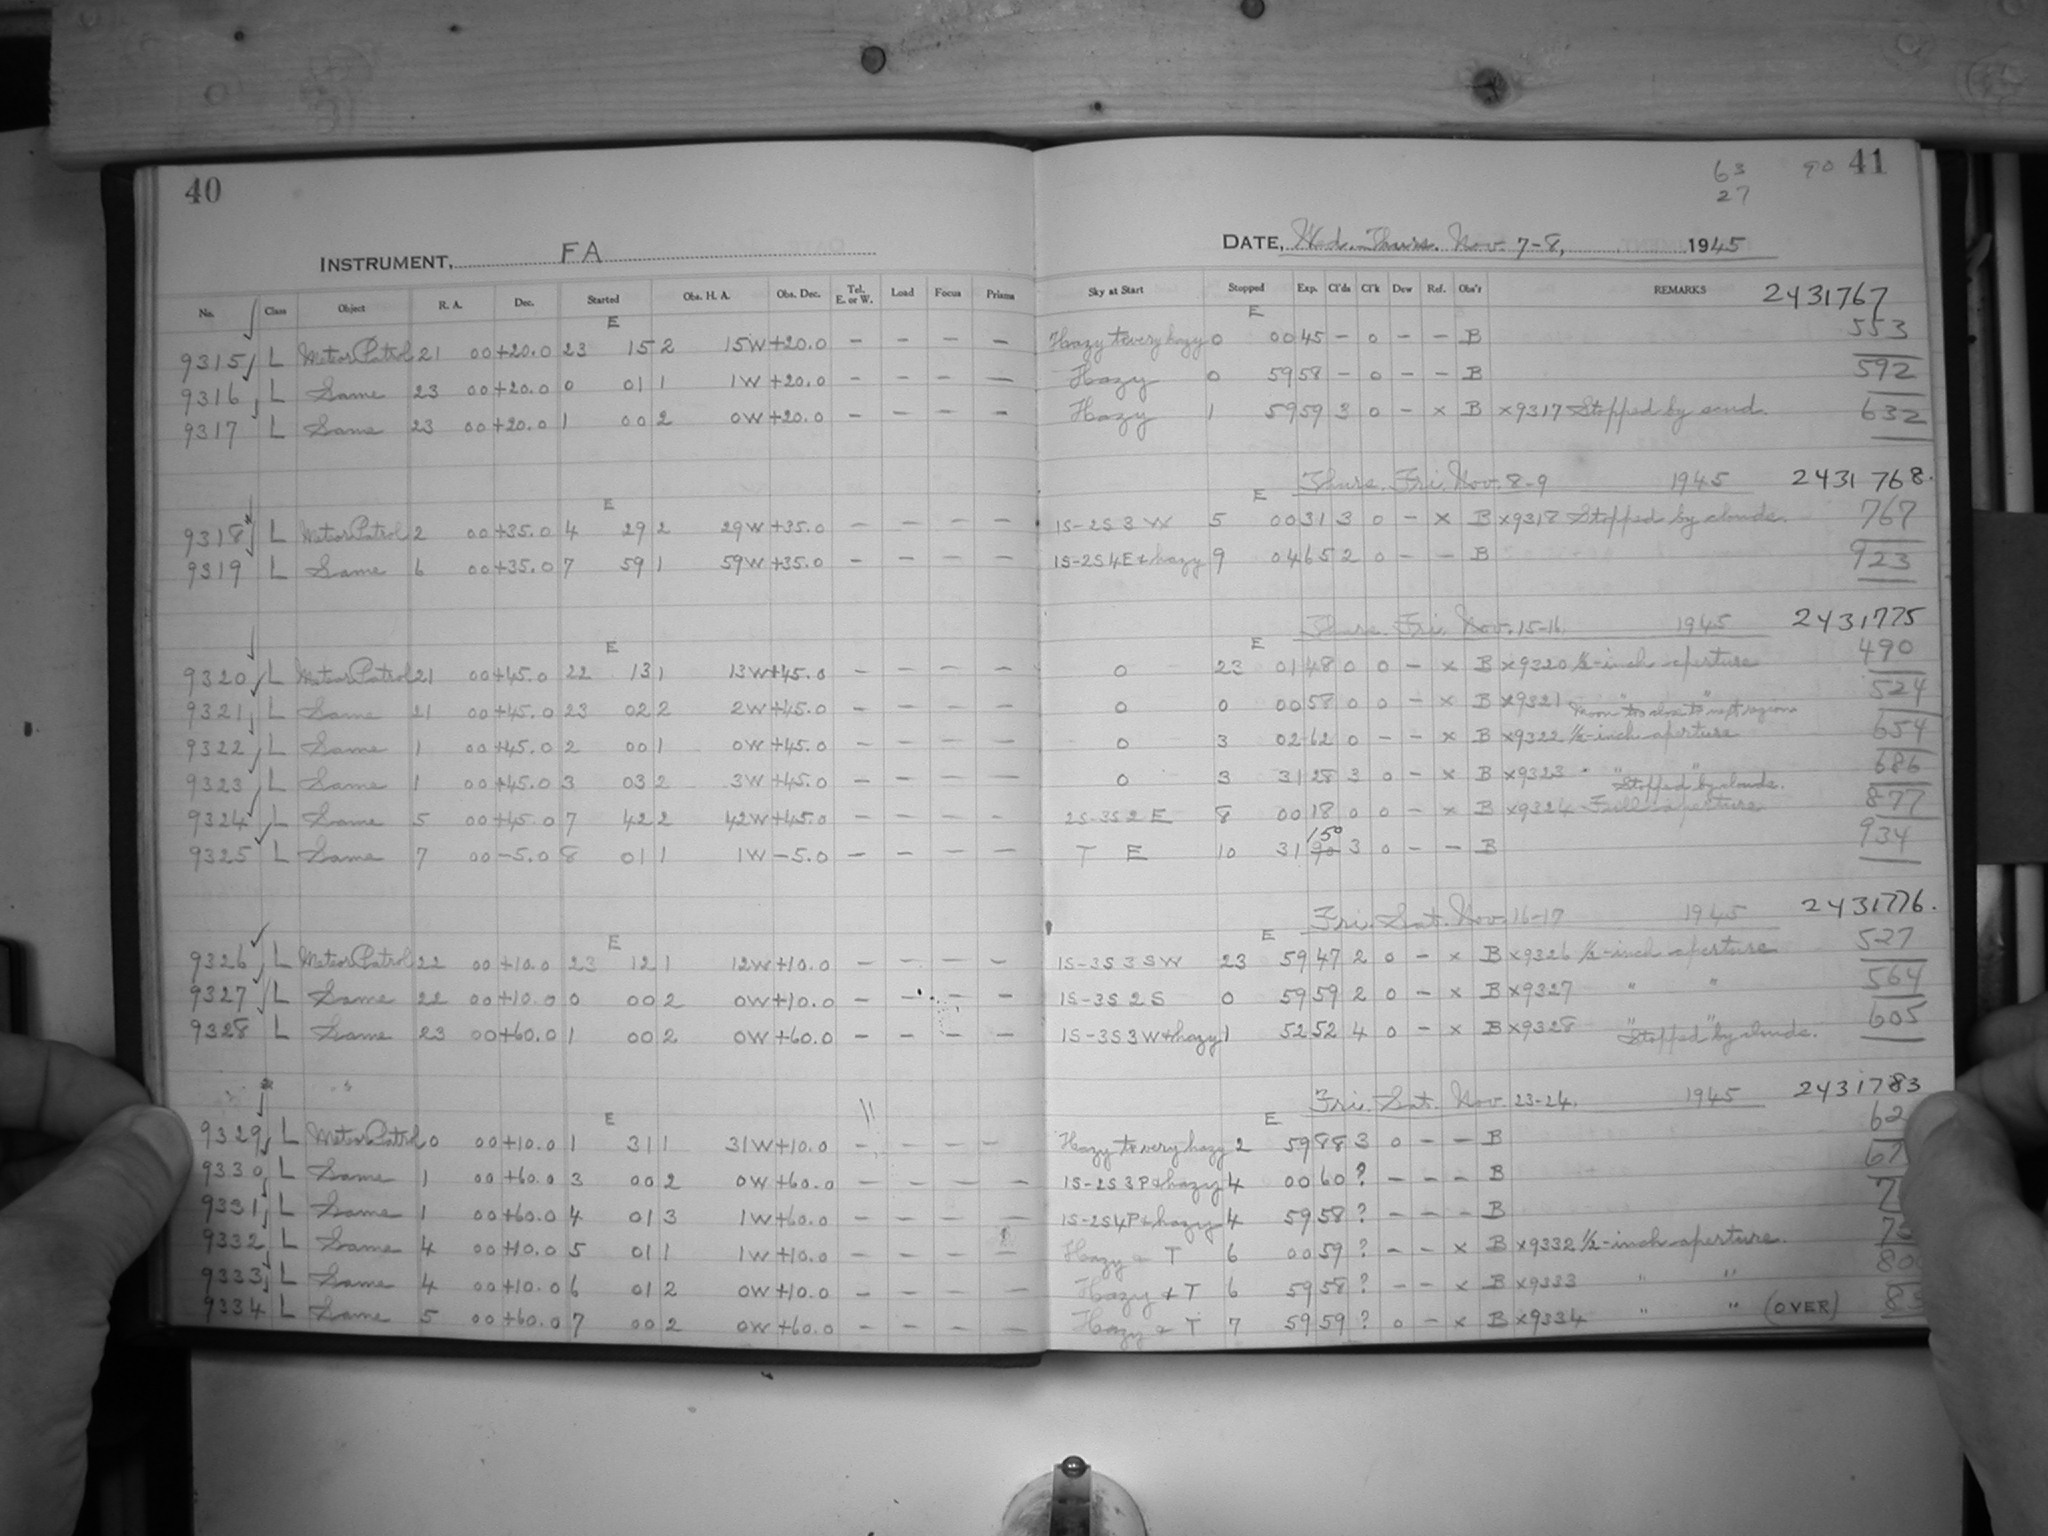 40
INSTRUMENT, FA
No. Class Object R. A. Dec. Started Obs. H. A. Obs. Dec. Tel. E. or W. Load Focus Prisms
E
9315 L Meteor Patrol 21 00 +20.0 23 15 2 15W +20.0 — — — —
9316 L Same 23 00 +20.0 0 01 1 1W +20.0 — — — —
9317 L Same 23 00 +20.0 1 00 2 0W +20.0 — — — —
E
9318 L Meteor Patrol 2 00 +35.0 4 29 2 29W +35.0 — — — —
9319 L Same 6 00 +35.0 7 59 1 59W +35.0 — — — —
E
9320 L Meteor Patrol 21 00 +45.0 22 13 1 13W +45.0 — — — —
9321 L Same 21 00 +45.0 23 02 2 2W +45.0 — — — —
9322 L Same 1 00 +45.0 2 00 1 0W +45.0 — — — —
9323 L Same 1 00 +45.0 3 03 2 3W +45.0 — — — —
9324 L Same 5 00 +45.0 7 42 2 42W +45.0 — — — —
9325 L Same 7 00 -5.0 8 01 1 1W -5.0 — — — —
E
9326 L Meteor Patrol 22 00 +10.0 23 12 1 12W +10.0 — — — —
9327 L Same 22 00 +10.0 0 00 2 0W +10.0 — — — —
9328 L Same 23 00 +60.0 1 00 2 0W +60.0 — — — —
E
9329 L Meteor Patrol 0 00 +10.0 1 31 1 31W +10.0 — — — —
9330 L Same 1 00 +60.0 3 00 2 0W +60.0 — — — —
9331 L Same 1 00 +60.0 4 01 3 1W +60.0 — — — —
9332 L Same 4 00 +10.0 5 01 1 1W +10.0 — — — —
9333 L Same 4 00 +10.0 6 01 2 0W +10.0 — — — —
9334 L Same 5 00 +60.0 7 00 2 0W +60.0 — — — —
63 90 41
27
DATE, Wed. Thurs. Nov. 7-8, 1945
Sky at Start Stopped Exp. Cl'ds Cl'k Dew Ref. Obs'r REMARKS 2431767
E
Hazy to very hazy 0 00 45 — 0 — — B 553
Hazy 0 59 58 — 0 — — B 592
Hazy 1 59 59 3 0 — x B x9317 Stopped by 632
Thurs. Fri. Nov. 8-9 1945 2431768.
E
1S-2S 3 W 5 00 31 3 0 — x B x9318 Stopped by clouds. 767
1S-2S 4E & hazy 9 04 65 2 0 — — B 923
Thurs. Fri. Nov. 15-16. 1945 2431775
E
0 23 01 48 0 0 — x B x9320 ½-inch aperture 490
0 0 00 58 0 0 — x B x9321 " " 524
Moon too close to next regions
0 3 02 62 0 — — x B x9322 ½-inch aperture 654
0 3 31 28 3 0 — x B x9323 " " 686
Stopped by clouds.
2S-3S 2 E 8 00 18 0 0 — x B x9324 Full aperture 877
T E 10 31 150 3 0 — — B 934
Fri. Sat. Nov. 16-17 1945 2431776.
E
1S-3S 3 SW 23 59 47 2 0 — x B x9326 ½-inch aperture 527
1S-3S 2 S 0 59 59 2 0 — x B x9327 " " 564
1S-3S 3 W & hazy 1 52 52 4 0 — x B x9328 " " 605
Stopped by clouds.
Fri. Sat. Nov. 23-24. 1945 2431783
E
Hazy to very hazy 2 59 88 3 0 — — B 62
1S-2S 3 P & hazy 4 00 60 ? — — — B
1S-2S 4P & hazy 4 59 58 ? — — — B
Hazy & T 6 00 59 ? — — x B x9332 ½-inch aperture.
Hazy & T 6 59 58 ? — — x B x9333 " "
Hazy & T 7 59 59 ? 0 — x B x9334 " " (OVER)